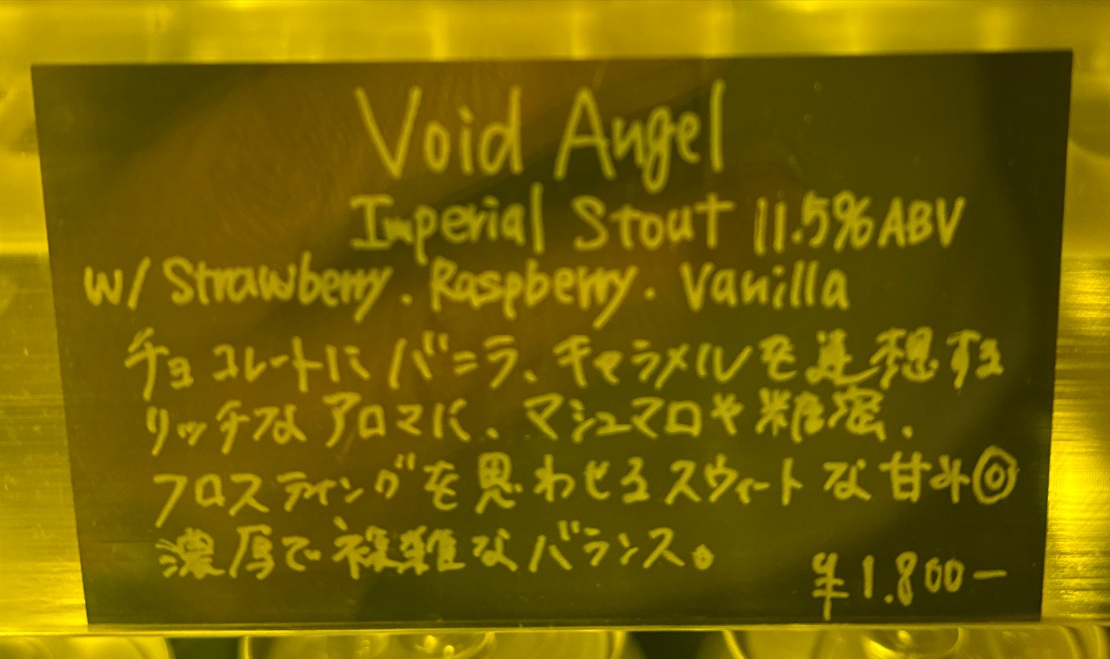 Void Angel
Imperial Stout 11.5% ABV
w/ Strawberry. Raspberry. Vanilla
チョコレートにバニラ、キャラメルを連想する
リッチなアロマに、マシュマロや糖蜜、
フロスティングを思わせるスウィートな甘み◎
濃厚で複雑なバランス。
¥1.800-